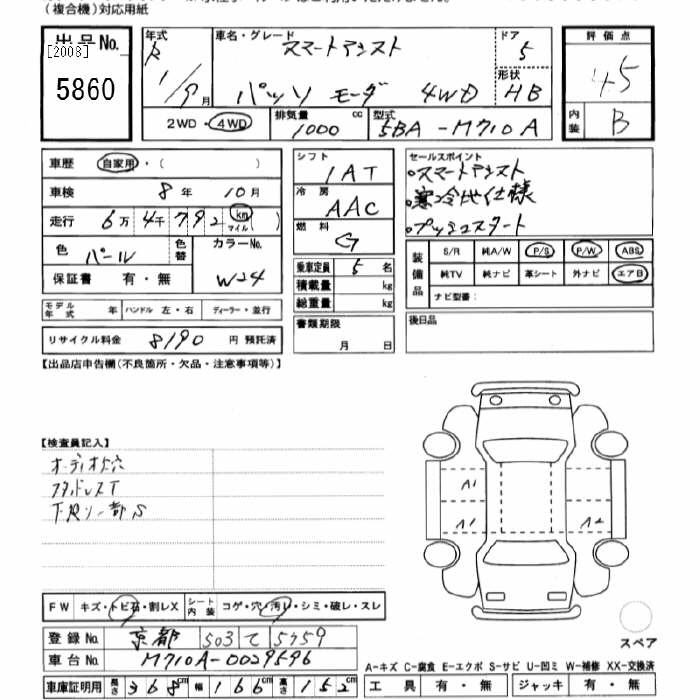 (複合機)対応用紙
出品No.
[2008]
5860
年式 R 1/9月
車名・グレード スマートアシスト
パッソ モーダ 4WD
ドア 5
形状 HB
評価点 4.5
内装 B
2WD・4WD
排気量 1000 cc
型式 5BA-M710A
車歴 自家用・( )
車検 8年 10月
走行 6万4千792 km マイル ( )
色 パール
色替
カラーNo. W24
保証書 有・無
モデル年式 年 ハンドル 左・右 ディーラー・並行
リサイクル料金 8190 円 預託済
シフト IAT
冷房 AAC
燃料 G
乗車定員 5 名
積載量 kg
総重量 kg
書類期限 月 日
セールスポイント
・スマートアシスト
・寒冷地仕様
・プッシュスタート
装備品 S/R 純A/W P/S P/W ABS
純TV 純ナビ 革シート 外ナビ エアB
ナビ型番:
後日品
【出品店申告欄(不良箇所・欠品・注意事項等)】
【検査員記入】
オーディオ欠穴
スタッドレスT
下廻り一部S
A1
A1
A2
FW キズ・トビ石・割レX シート内装 コゲ・穴・汚レ・シミ・破レ・スレ
登録No. 京都 503 て 5759
車台No. M710A-0029596
車庫証明用 長さ 368cm 幅 166cm 高さ 152cm
スペア
A-キズ C-腐食 E-エクボ S-サビ U-凹ミ W-補修 XX-交換済
工具 有・無 ジャッキ 有・無